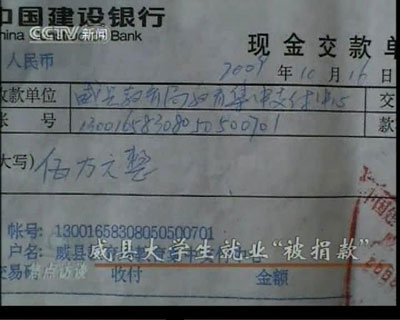 中国建设银行
CCTV 新闻
China Construction Bank
人民币
现金交款单
2009 年 10 月 16 日
收款单位 威县教育局教育集中支付中心 交
帐 号 13001658308050500701 款
大写) 伍万元整
帐号: 13001658308050500701
户名: 威县
威县大学生就业“被捐款”
焦点访谈
交易码 收付 金额